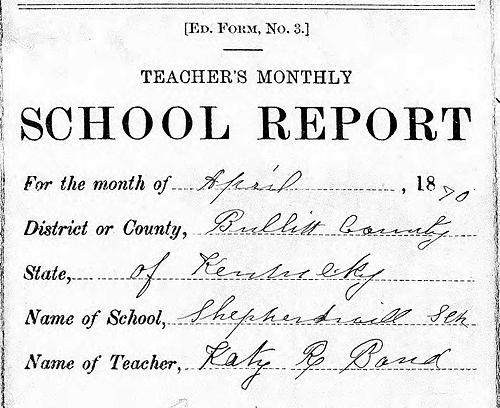 [ED. FORM, NO. 3.]
TEACHER'S MONTHLY
SCHOOL REPORT
For the month of April, 1870
District or County, Bullitt County
State, of Kentucky
Name of School, Shepherdsvill Sch
Name of Teacher, Katy R Bond